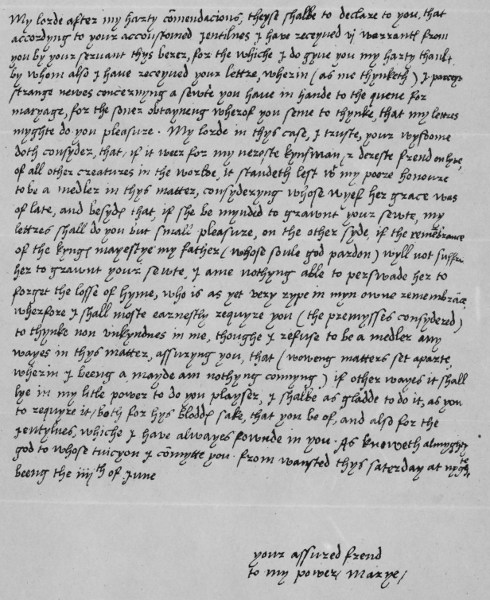 My lorde after my harty cõmendacions, theyse shalbe to declare to you, that
accordyng to your accustomed jentilnes I have receyved vj warrants from
you by your servant thys berer, for the whiche I do gyve you my harty thanks
by whom also I have receyved your lettre, wherin (as me thynketh) I perceyve
strange newes concernyng a sewte you have in hande to the quene for
maryage, for the soner obtaynyng wherof you seme to thynke, that my lettres
myghte do you pleasure. My lorde in thys case, I truste, your wysdome
doth consyder, that, if it weer for my nereste kynsman & dereste frend on lyve,
of all other creatures in the worlde, it standeth lest wt my poore honoure
to be a medler in thys matter, consyderyng whose wyef her grace was
of late, and besyds that if she be mynded to grawnt your sewte, my
lettres shall do you but small pleasure, on the other syde, if the remembrance
of the kyngs mayestye my father (whose soule god pardon) wyll not suffre
her to grawnt your sewte, I ame nothyng able to perswade her to
forget the losse of hyme, who is as yet very rype in myn owne remembrãce
wherfore I shall moste earnestly requyre you (the premysses consydered)
to thynke non unkyndnes in me, thoughe I refuse to be a medler any
wayes in thys matter, assuryng you, that (woweng matters set aparte,
wherin I beeng a mayde am nothyng connyng) if other wayes it shall
lye in my litle power to do you playser, I shalbe as gladde to do it, as you
to requyre it, both for hys blodds sake, that you be of, and also for the
jentylnes, whiche I have alwayes fownde in you. As knoweth almyghty
god to whose tuicyon I cõmytte you. from wansted thys saterday at nyghte
beeng the iiijth of June
your assured frend
to my power/ Marye/